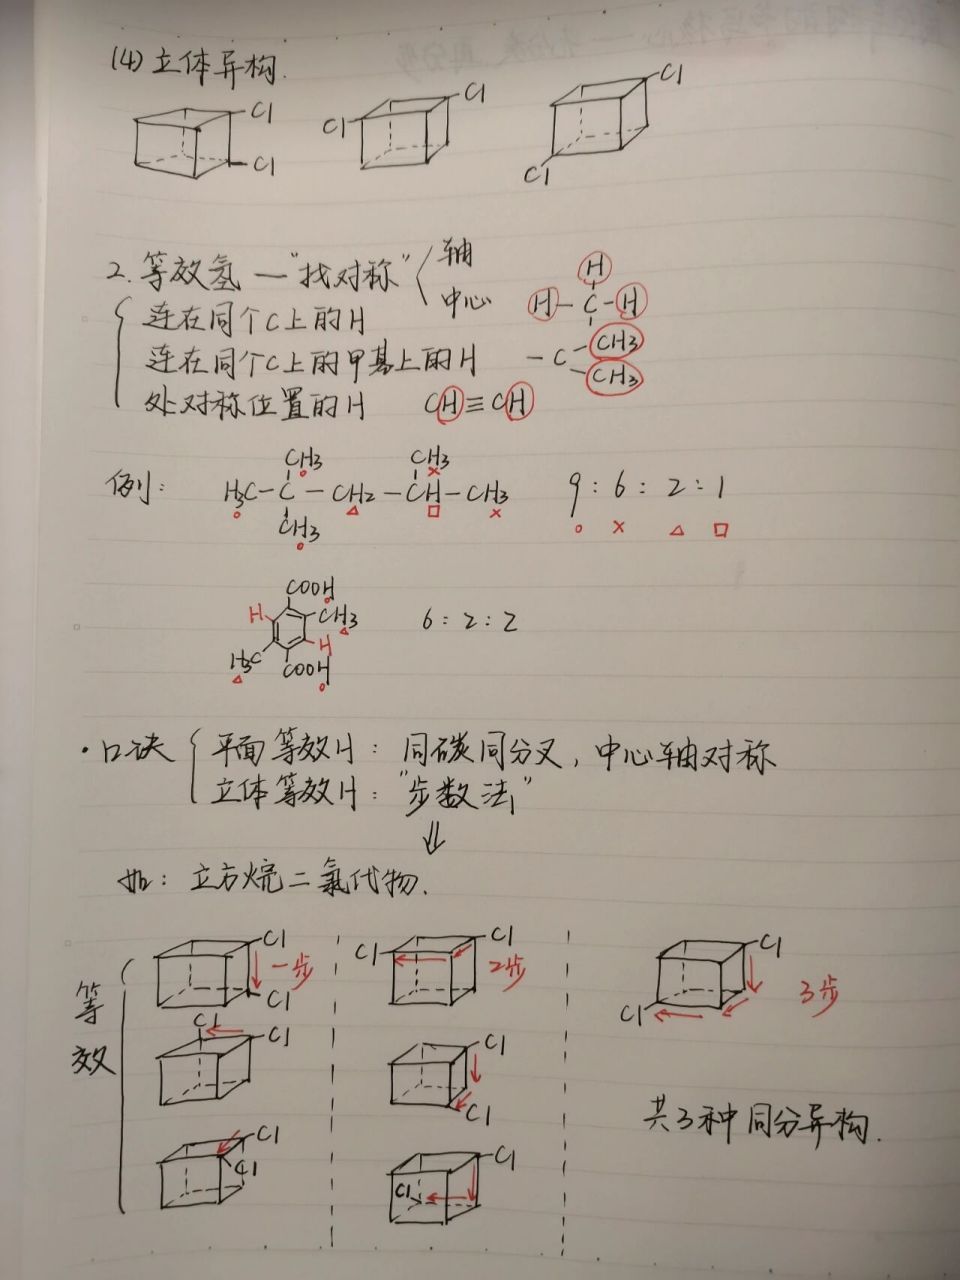 (4) 立体异构.
Cl Cl Cl
Cl Cl
Cl
2. 等效氢 — "找对称" 轴
中心
H
H—C—H
连在同个C上的H
连在同个C上的甲基上的H —C CH3
CH3
处对称位置的H CH≡CH
CH3 CH3
例: H3C—C—CH2—CH—CH3 9:6:2:1
CH3 ○ × △ □
COOH
H CH3 6:2:2
H3C H
COOH
·口诀 平面等效H: 同碳同分叉, 中心轴对称
立体等效H: "步数法"
⇓
如: 立方烷二氯代物.
等效
Cl Cl Cl
一步 Cl 2步
Cl Cl 3步
Cl Cl Cl
Cl
共3种同分异构.
Cl Cl
Cl Cl